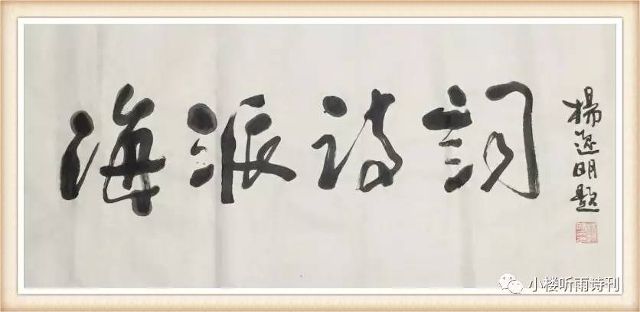 海派诗词
楊逸明題
小楼听雨诗刊